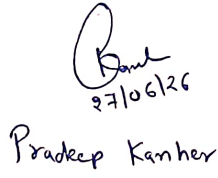 27/06/26
Pradeep Kanher